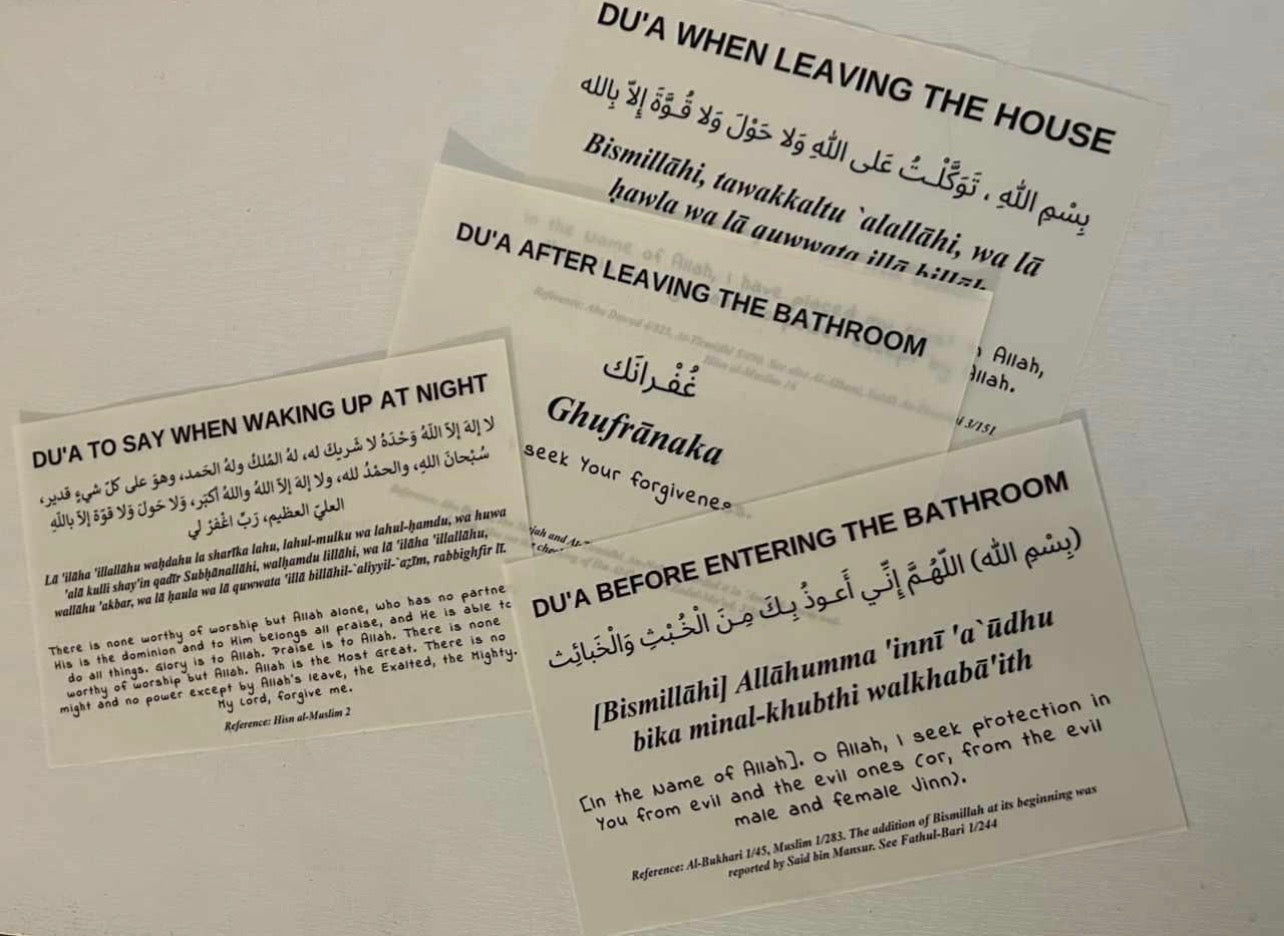 DU'A WHEN LEAVING THE HOUSE
بِسْمِ اللهِ ، تَوَكَّلْـتُ عَلى اللهِ وَلا حَوْلَ وَلا قُـوَّةَ إِلاّ بِالله
Bismillāhi, tawakkaltu `alallāhi, wa lā
ḥawla wa lā quwwata illā billāh
In the Name of Allah, I have placed my
Allah,
Allah.
3/151
DU'A AFTER LEAVING THE BATHROOM
غُفْـرانَك
Ghufrānaka
seek Your forgiveness.
DU'A TO SAY WHEN WAKING UP AT NIGHT
لا إلهَ إلاّ اللّهُ وَحْدَهُ لا شَريكَ له، لهُ المُلكُ ولهُ الحَمد، وهوَ على كلّ شيءٍ قدير،
سُبْحانَ اللهِ، والحمْدُ لله، ولا إلهَ إلاّ اللهُ واللهُ أكبَر، وَلا حَولَ وَلا قوّة إلاّ باللّهِ
العليّ العظيم، رَبِّ اغْفرْ لي
Lā 'ilāha 'illallāhu waḥdahu la sharīka lahu, lahul-mulku wa lahul-ḥamdu, wa huwa
'alā kulli shay'in qadīr Subḥānallāhi, walḥamdu lillāhi, wa lā 'ilāha 'illallāhu,
wallāhu 'akbar, wa lā ḥaula wa lā quwwata 'illā billāhil-`aliyyil-`aẓīm, rabbighfir lī.
There is none worthy of worship but Allah alone, Who has no partne
His is the dominion and to Him belongs all praise, and He is able to
do all things. Glory is to Allah. Praise is to Allah. There is none
worthy of worship but Allah. Allah is the Most Great. There is no
might and no power except by Allah's leave, the Exalted, the Mighty.
My Lord, forgive me.
Reference: Hisn al-Muslim 2
DU'A BEFORE ENTERING THE BATHROOM
(بِسْمِ الله) اللّهُـمَّ إِنِّـي أَعـوذُ بِـكَ مِـنَ الْخُـبْثِ وَالْخَبائِث
[Bismillāhi] Allāhumma 'innī 'a`ūdhu
bika minal-khubthi walkhabā'ith
[In the Name of Allah]. O Allah, I seek protection in
You from evil and the evil ones (or, from the evil
male and female Jinn).
Reference: Al-Bukhari 1/45, Muslim 1/283. The addition of Bismillah at its beginning was
reported by Said bin Mansur. See Fathul-Bari 1/244